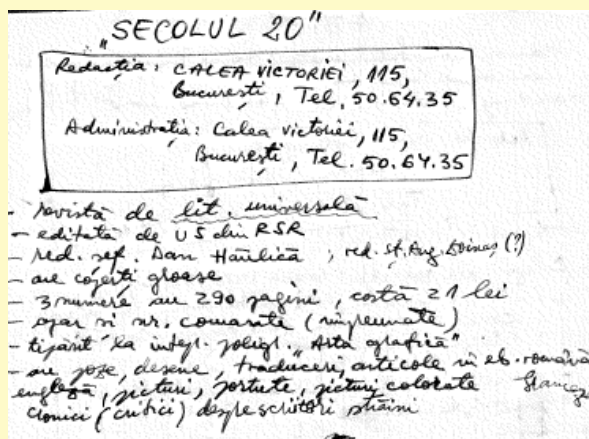 „SECOLUL 20"
Redacția: CALEA VICTORIEI, 115,
București, Tel. 50.64.35
Administrația: Calea Victoriei, 115,
București, Tel. 50.64.35
- revistă de lit. universală
- editată de US din RSR
- red. șef. Dan Hăulică, red. Șt. Aug. Doinaș (?)
- are coperți groase
- 3 numere au 290 pagini, costă 21 lei
- apar și nr. comasate (împreunate)
- tipărit la întepr. poligr. „Arta grafică"
- are poze, desene, traduceri, articole în lb. română
engleză, picturi, portrete, picturi colorate franceză
cronici (critici) despre scriitori străini